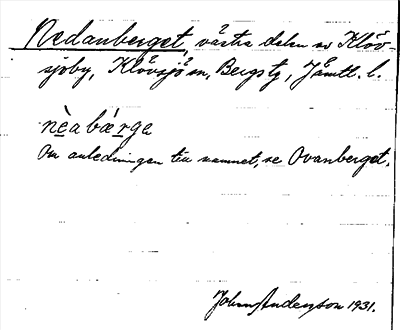 Nedanberget, västra delen av Klöv-
sjöby, Klövsjö sn, Bergs tg, Jämtl. l.
nèabǽrge
Om anledningen till namnet, se Ovanberget.
John Anderson 1931.